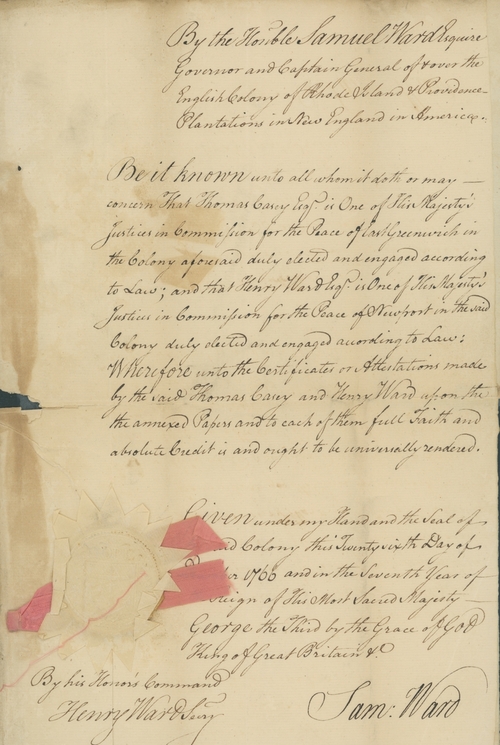 By the Honble Samuel Ward Esquire
Governor and Captain General of & over the
English Colony of Rhode Island & Providence
Plantations in New England in America.
Be it known unto all whom it doth or may
concern That Thomas Casey Esqr. is One of His Majesty's
Justices in Commission for the Peace of East Greenwich in
the Colony aforesaid duly elected and engaged according
to Law; and that Henry Ward Esqr. is One of His Majesty's
Justices in Commission for the Peace of Newport in the said
Colony duly elected and engaged according to Law:
Wherefore unto the Certificates or Attestations made
by the said Thomas Casey and Henry Ward upon the
the annexed Papers and to each of them full Faith and
absolute Credit is and ought to be universally rendered.
Given under my Hand and the Seal of
said Colony this Twenty sixth Day of
and in the Seventh Year of
Reign of His Most Sacred Majesty
George the Third by the Grace of GOD
King of Great Britain &c
By his Honor's Command
Henry Ward Secry
Sam: Ward